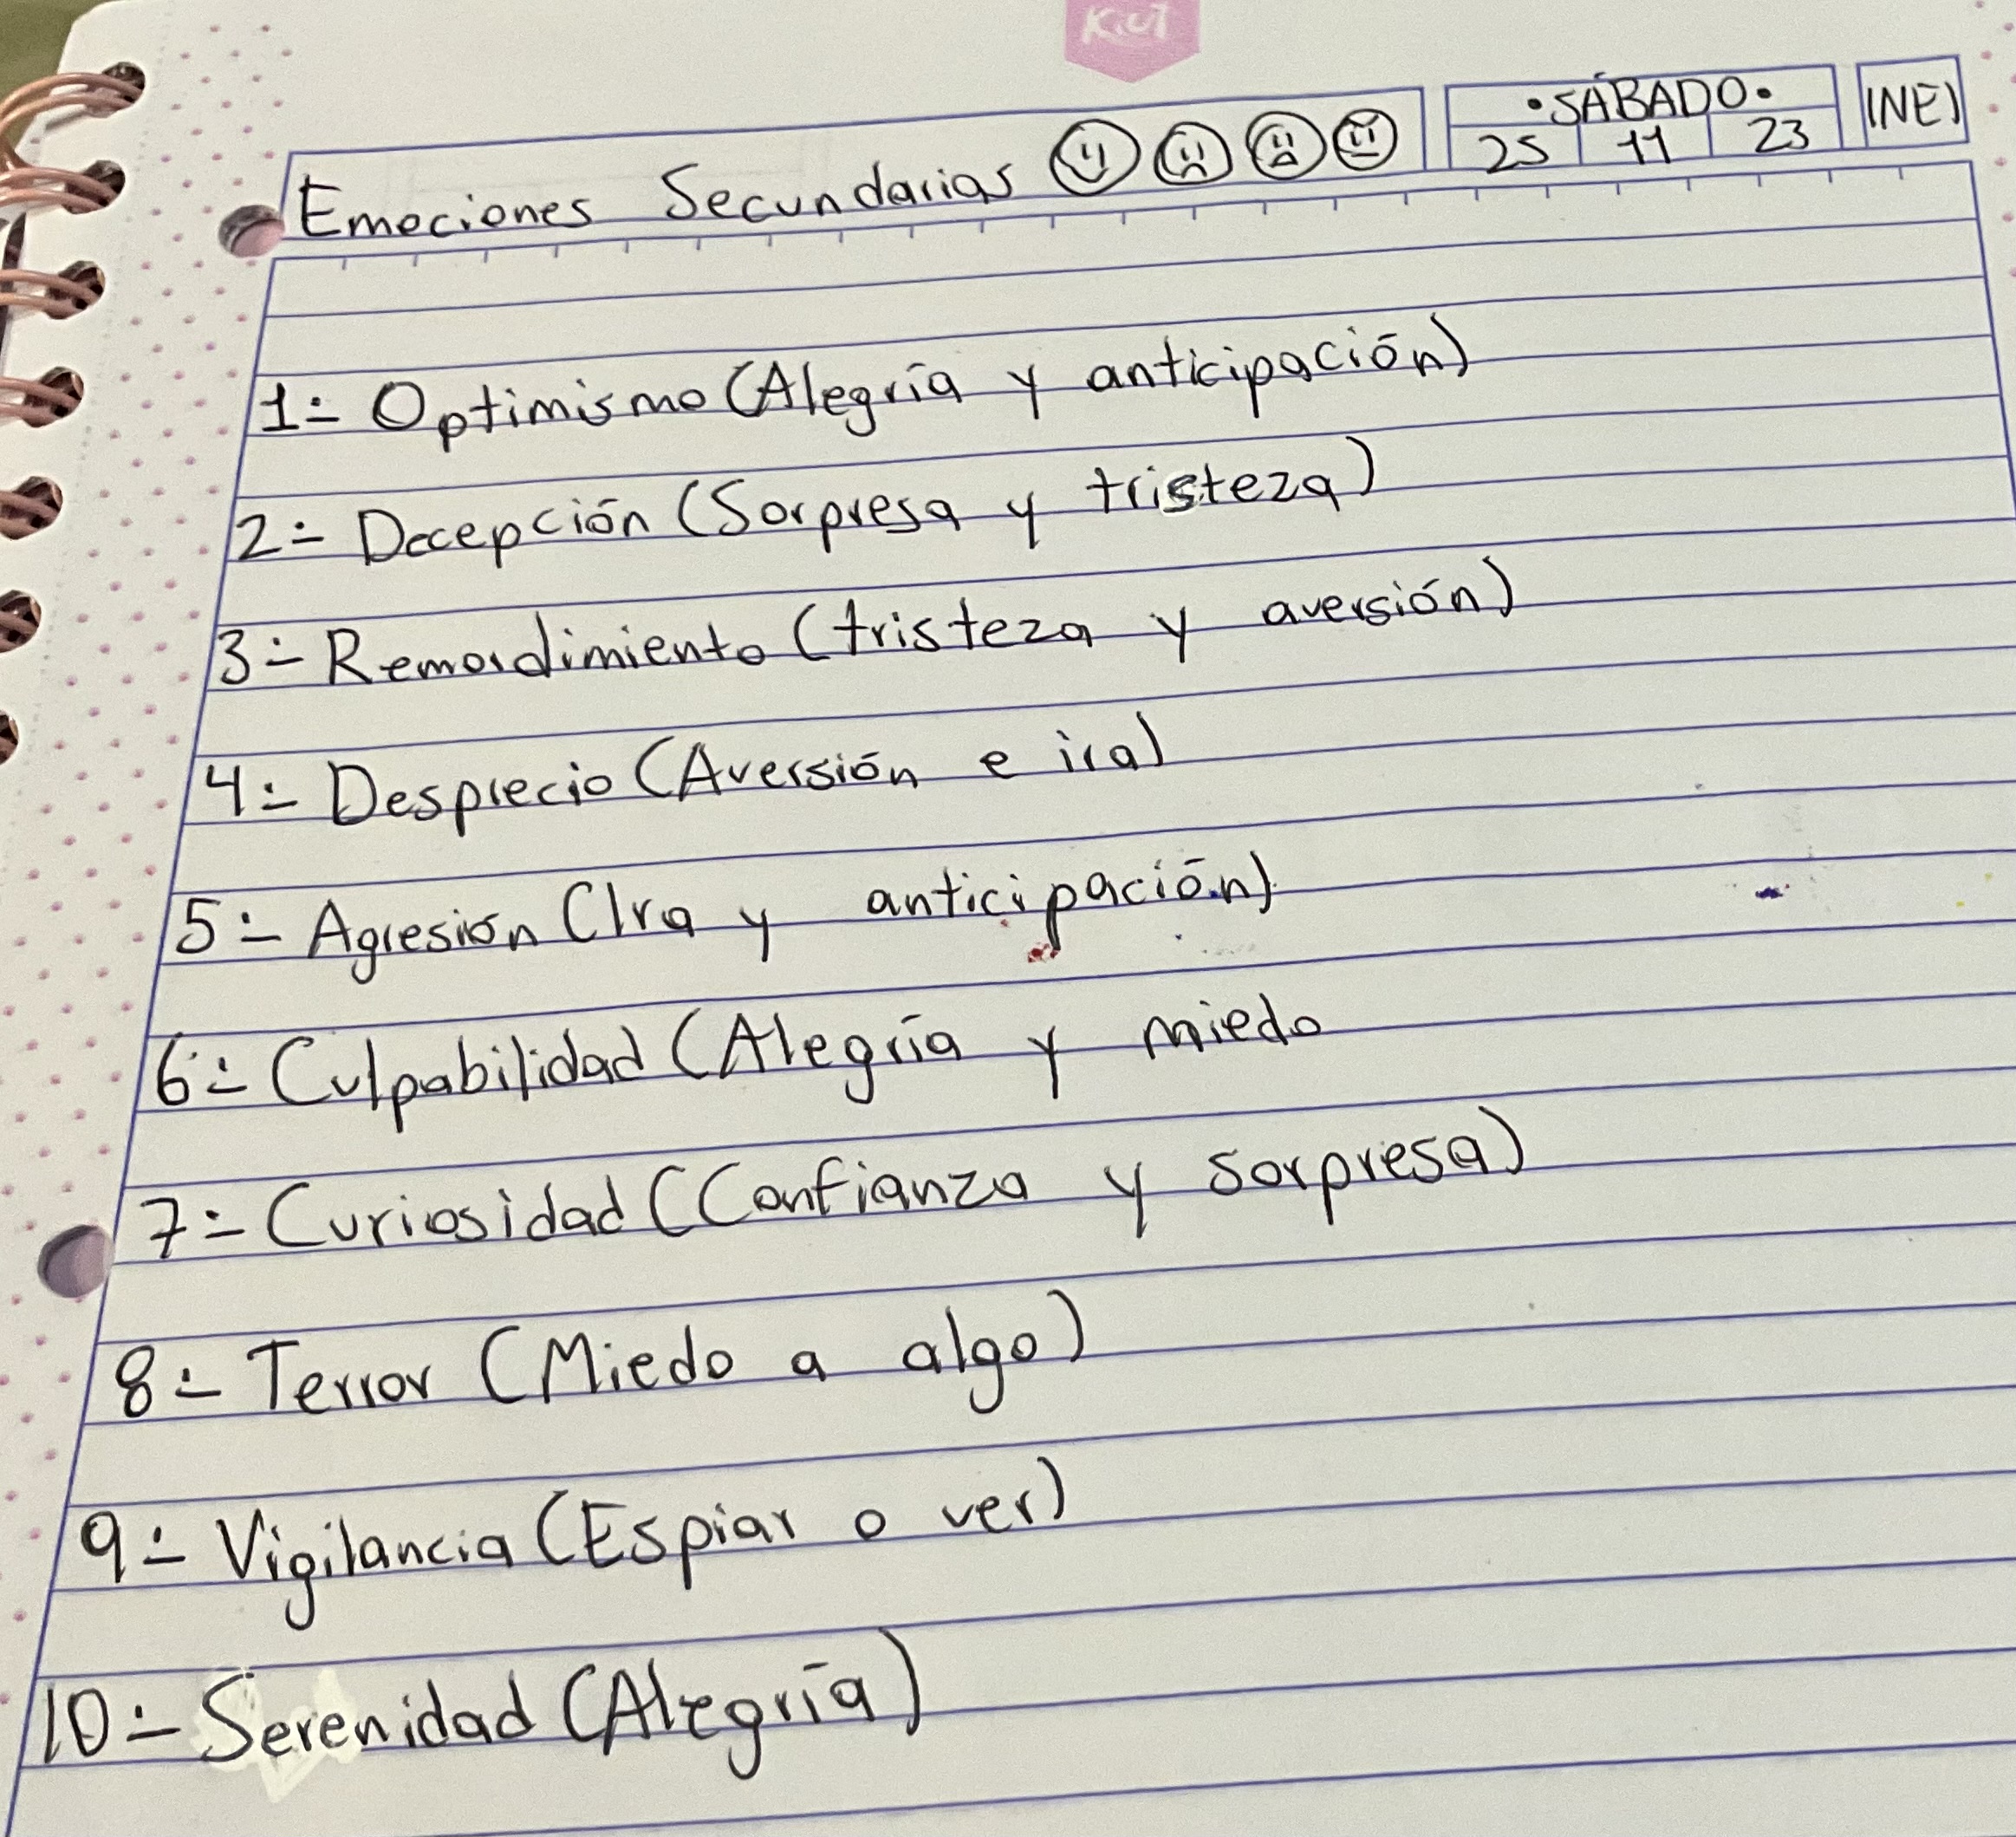 Kiut
•SÁBADO•
25 11 23
INEI
Emociones Secundarias
1.- Optimismo (Alegría y anticipación)
2.- Decepción (Sorpresa y tristeza)
3.- Remordimiento (tristeza y aversión)
4.- Desprecio (Aversión e ira)
5.- Agresión (Ira y anticipación)
6.- Culpabilidad (Alegría y miedo
7.- Curiosidad (Confianza y sorpresa)
8.- Terror (Miedo a algo)
9.- Vigilancia (Espiar o ver)
10.- Serenidad (Alegría)